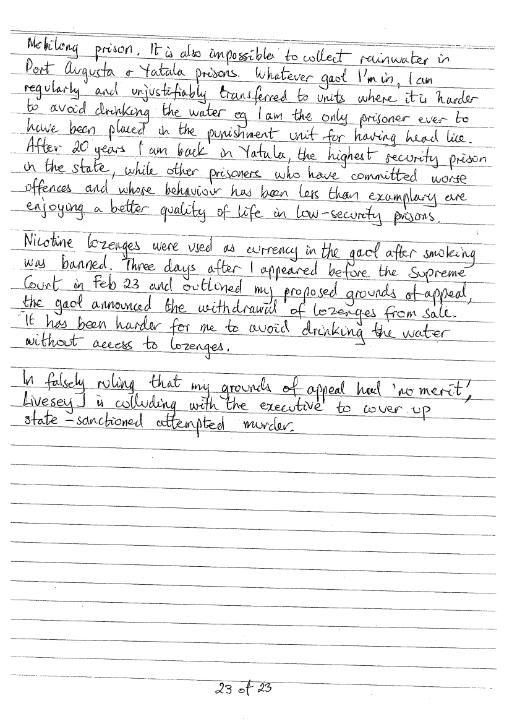 Mobilong prison. It is also impossible to collect rainwater in
Port Augusta or Yatala prisons. Whatever gaol I'm in, I am
regularly and unjustifiably transferred to units where it is harder
to avoid drinking the water eg I am the only prisoner ever to
have been placed in the punishment unit for having head lice.
After 20 years I am back in Yatala, the highest security prison
in the state, while other prisoners who have committed worse
offences and whose behaviour has been less than examplary are
enjoying a better quality of life in low-security prisons.
Nicotine lozenges were used as currency in the gaol after smoking
was banned. Three days after I appeared before the Supreme
Court in Feb 23 and outlined my proposed grounds of appeal,
the gaol announced the withdrawal of lozenges from sale.
It has been harder for me to avoid drinking the water
without access to lozenges.
In falsely ruling that my grounds of appeal had 'no merit',
Livesey J is colluding with the executive to cover up
state-sanctioned attempted murder.
23 of 23